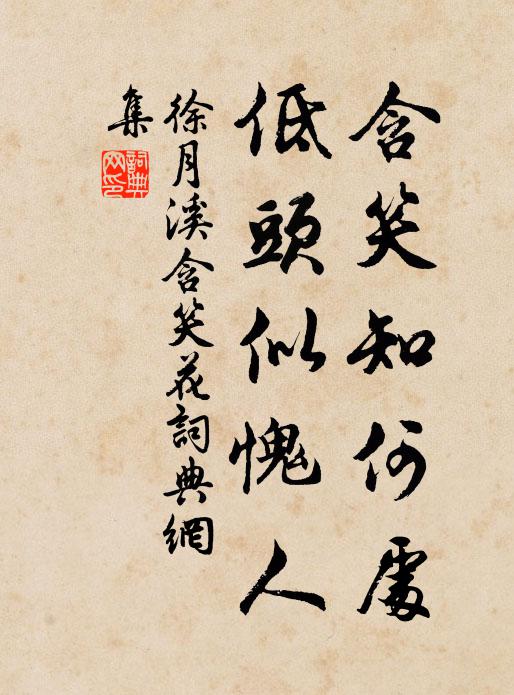 含笑知何處
低頭似愧人
徐月溪含笑花詞典網
集
詞典網印